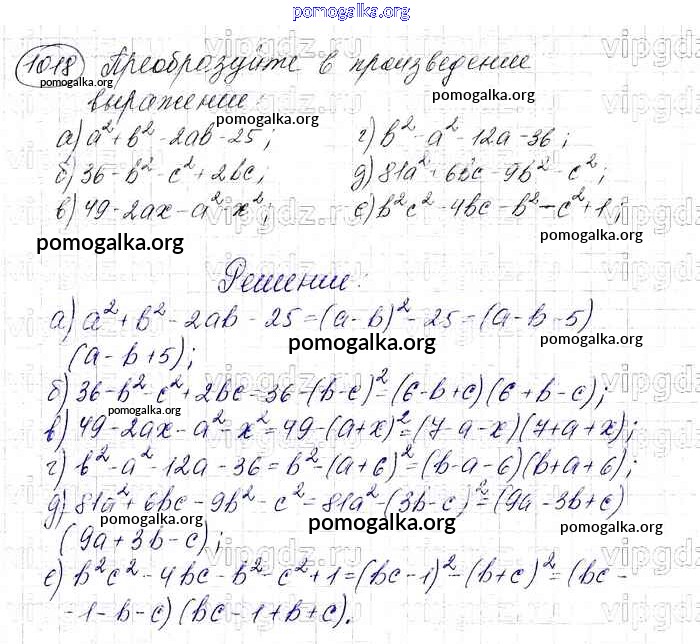 pomogalka.org
1018 Преобразуйте в произведение
pomogalka.org
выражение:
pomogalka.org
а) a² + b² - 2ab - 25; г) b² - a² - 12a - 36;
б) 36 - b² - c² + 2bc; д) 81a² + 6bc - 9b² - c²;
в) 49 - 2ax - a² - x²; е) b²c² - 4bc - b² - c² + 1;
pomogalka.org
pomogalka.org
pomogalka.org
Решение:
а) a² + b² - 2ab - 25 = (a - b)² - 25 = (a - b - 5)
(a - b + 5);
pomogalka.org
pomogalka.org
б) 36 - b² - c² + 2bc = 36 - (b - c)² = (6 - b + c)(6 + b - c);
pomogalka.org
в) 49 - 2ax - a² - x² = 49 - (a + x)² = (7 - a - x)(7 + a + x);
г) b² - a² - 12a - 36 = b² - (a + 6)² = (b - a - 6)(b + a + 6);
д) 81a² + 6bc - 9b² - c² = 81a² - (3b - c)² = (9a - 3b + c)
pomogalka.org
pomogalka.org
pomogalka.org
(9a + 3b - c);
е) b²c² - 4bc - b² - c² + 1 = (bc - 1)² - (b + c)² = (bc -
- 1 - b - c)(bc - 1 + b + c).
vipgdz.ru